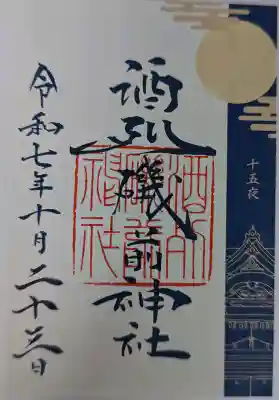 十五夜
酒列磯前神社
酒列
磯前
神社
令和七年十月二十三日